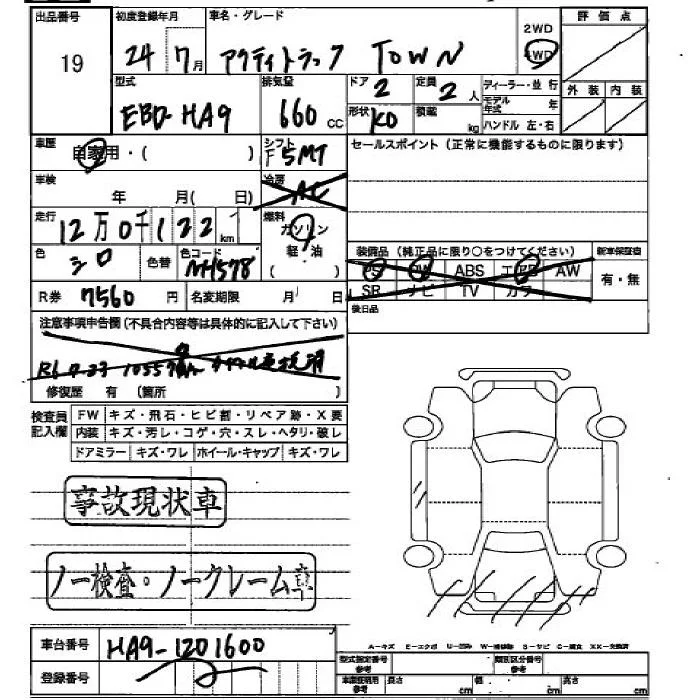 出品番号 初度登録年月 車名・グレード 2WD 評価点
19 24 7月 アクティトラック TOWN 4WD
型式 排気量 ドア 定員 ディーラー・並行 外装 内装
EBD-HA9 660 cc 2 2人 モデル年式 年
形状 KD 積載 kg ハンドル 左・右
車歴 自家用・( ) シフト F5MT セールスポイント(正常に機能するものに限ります)
車検 年 月( 日) 冷房 AC
走行 12万0千122km 燃料 ガソリン
軽・油
( )
色 シロ 色替 色コード NH578 装備品(純正品に限り○をつけてください) 新車保証書
PS PW ABS エアB AW 有・無
SR ナビ TV カワ
R券 7560円 名変期限 月 日 後日品
注意事項申告欄(不具合内容等は具体的に記入して下さい)
修復歴 有(箇所 )
検査員記入欄 FW キズ・飛石・ヒビ割・リペア跡・X要
内装 キズ・汚レ・コゲ・穴・スレ・ヘタリ・破レ
ドアミラー キズ・ワレ ホイール・キャップ キズ・ワレ
事故現状車
ノー検査・ノークレーム車
車台番号 HA9-1201600
登録番号
A-キズ E-エクボ U-凹み W-補修跡 S-サビ C-腐食 XX-交換済
型式指定番号 参考 類別区分番号 参考
車庫証明用 参考 長さ cm 幅 cm 高さ cm